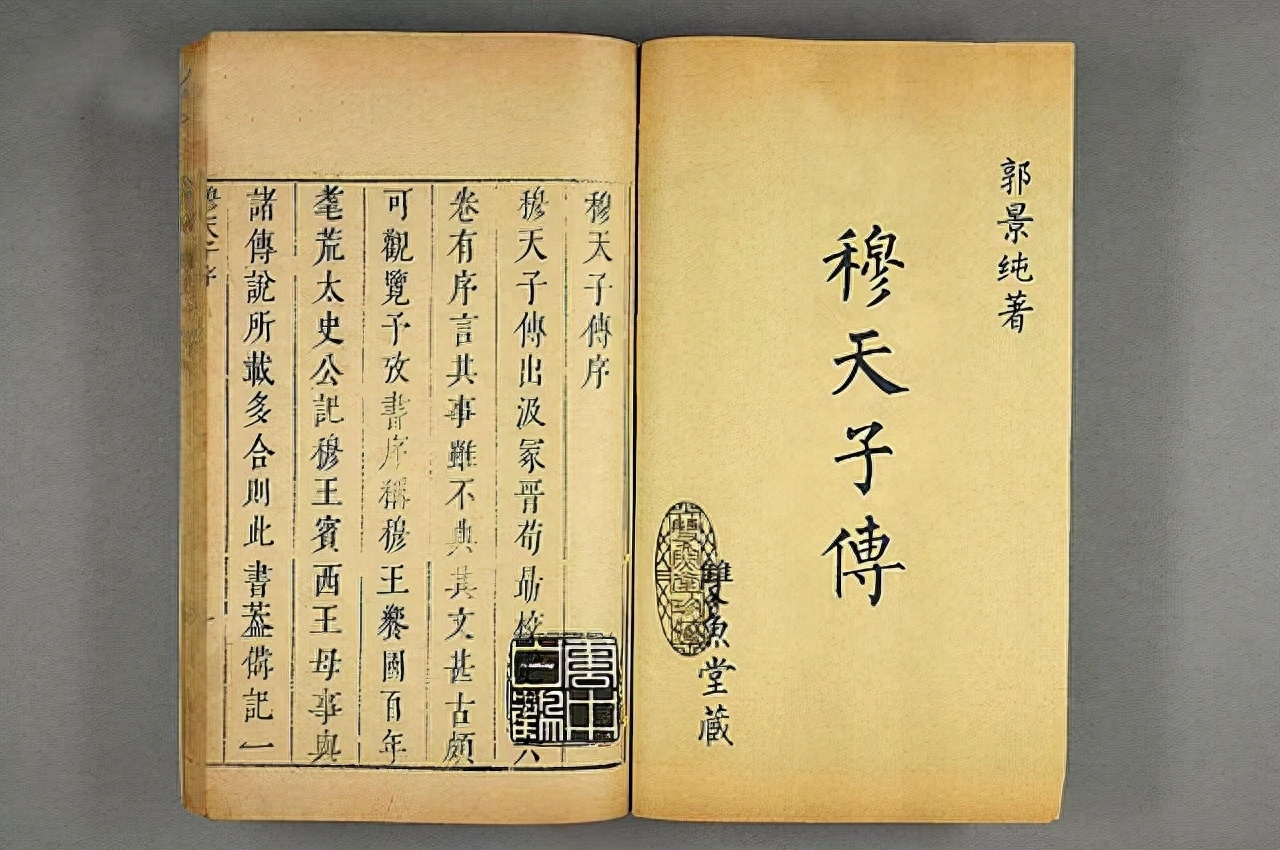 郭景纯著
穆天子傳
雙魚堂藏
穆天子傳序
穆天子傳出汲冢晉荀勗校六
卷有序言其事雖不典其文甚古頗
可觀覽予攷書序稱穆王饗國百年
耄荒太史公記穆王賓西王母事與
諸傳說所載多合則此書葢僃記一
穆天子序